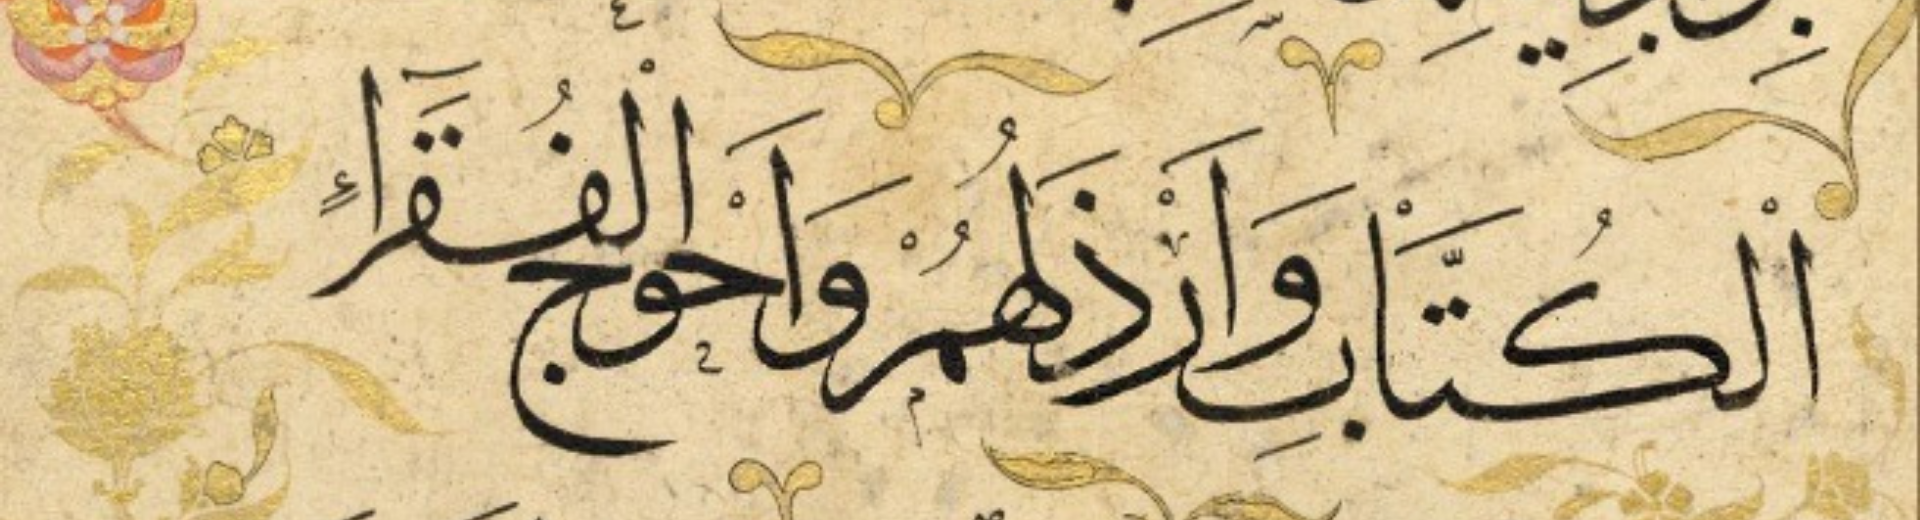 الْكُتَّابِ وَاَرْذَلُهُمْ وَاَحْوَجُ الْفُقَرَاءِ